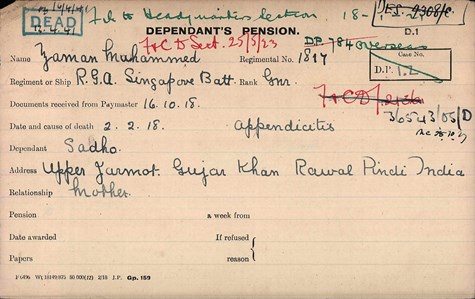 DEAD
F.d. to Headquarters Section 18-
DEPENDANT'S PENSION.
D.1
F & C D Sect. 25/5/23
D.P. 784 Overseas
Name Zaman Muhammed Regimental No. 1817
Case No.
D.P. 1.
Regiment or Ship R.G.A. Singapore Batt. Rank Gnr.
Documents received from Paymaster 16.10.18.
F & C D/
3/0543/05/D
Date and cause of death 2.2.18. appendicitis
Dependant Sadho.
Address Upper Jarmot. Gujar Khan Rawal Pindi India
Relationship Mother.
Pension a week from
Date awarded If refused
Papers reason
Gp. 159